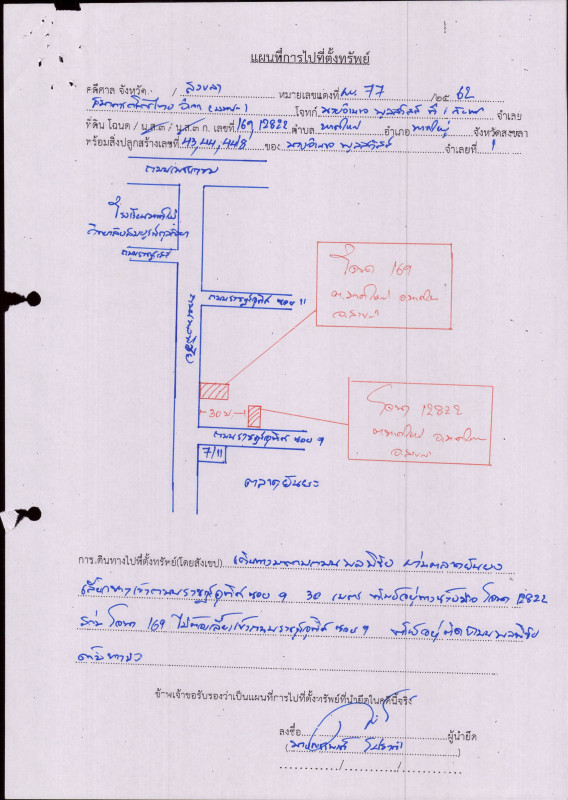 แผนที่การไปที่ตั้งทรัพย์
คดีศาล จังหวัด / สงขลา หมายเลขแดงที่ ผบ. 77 /25 62
โจทก์ ที่ 1 จำเลย
ที่ดิน โฉนด / น.ส.๓ / น.ส.๓ ก. เลขที่ 169, 12822 ตำบล หาดใหญ่ อำเภอ หาดใหญ่ จังหวัดสงขลา
พร้อมสิ่งปลูกสร้างเลขที่ 43, 44, 448 ของ จำเลยที่ 1
ถนนเพชรเกษม
โรงเรียนหาดใหญ่
วิทยาลัยสมบูรณ์กุลกันยา
ถนนราษฎร์อุทิศ ซอย 11
โฉนด 169
ต.หาดใหญ่ อ.หาดใหญ่
จ.สงขลา
30 ม.
โฉนด 12822
ต.หาดใหญ่ อ.หาดใหญ่
จ.สงขลา
ถนนราษฎร์อุทิศ ซอย 9
7/11
ตลาดยันยง
การเดินทางไปที่ตั้งทรัพย์(โดยสังเขป) เดินทางมาตามถนน พลพิชัย ผ่านตลาดยันยง
เลี้ยวขวาเข้าถนนราษฎร์อุทิศ ซอย 9 30 เมตร ทรัพย์อยู่ทางซ้ายมือ โฉนด 12822
ส่วน โฉนด 169 ไม่ต้องเลี้ยวเข้าถนนราษฎร์อุทิศ ซอย 9 ทรัพย์อยู่ติดถนน พลพิชัย
ข้าพเจ้าขอรับรองว่าเป็นแผนที่การไปที่ตั้งทรัพย์ที่นำยึดในคดีนี้จริง
ลงชื่อ ผู้นำยึด
( )
/ /